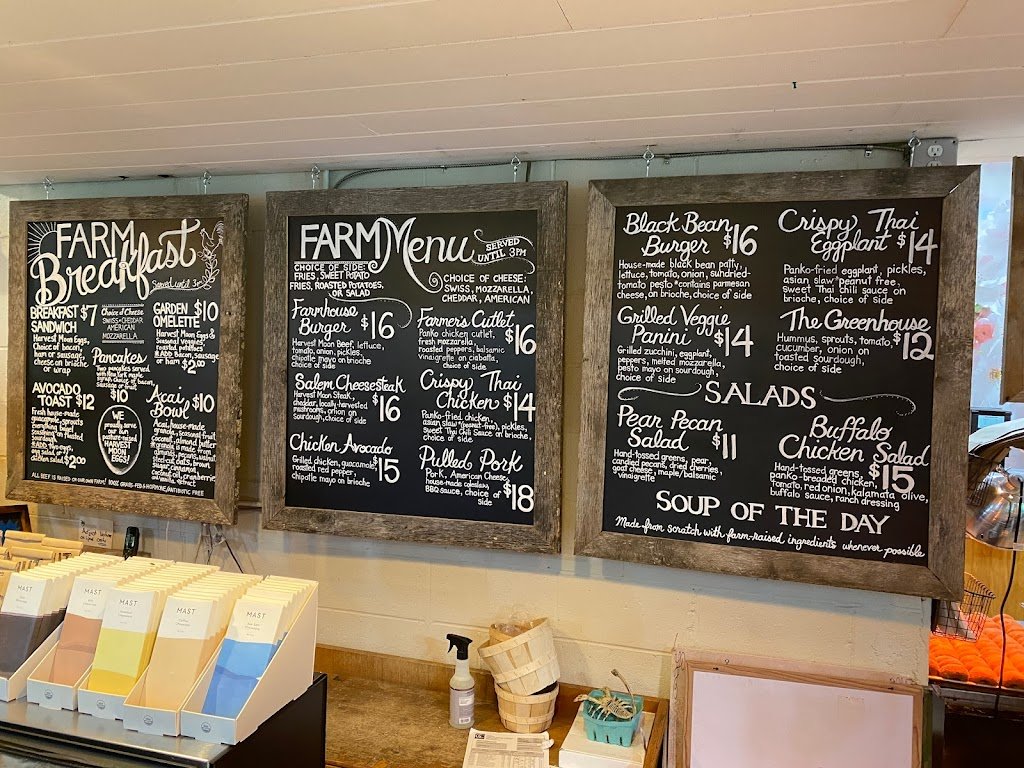 FARM
Breakfast
Served until 3
BREAKFAST $7
SANDWICH
Harvest Moon Eggs,
Choice of bacon,
ham or sausage,
cheese on brioche
or wrap
Choice of Cheese
SWISS•CHEDDAR
AMERICAN
MOZZARELLA
GARDEN $10
OMELETTE
Harvest Moon Eggs &
Seasonal Veggies
roasted potatoes
ADD Bacon, sausage
or ham $2.00
Pancakes
Two pancakes served
syrup, choice of bacon,
sausage or fruit
$10
AVOCADO
TOAST $12
Fresh house-made
guacamole, sprouts
everything bagel
seasoning on toasted
sourdough
egg salad, or
chicken salad $2.00
WE
proudly serve
our own
pasture-raised
HARVEST
MOON
EGGS!
Acai $10
Bowl
Acai, house-made
granola, seasonal fruit
Coconut, almond butter
granola is made from
almonds, pecans, walnut
steel-cut oats, brown
sugar, cinnamon,
coconut oil, cranberries
vanilla extract
ALL BEEF IS RAISED ON OUR OWN FARM! 100% GRASS-FED & HORMONE/ANTIBIOTIC FREE
FARM Menu
SERVED
UNTIL 3PM
CHOICE OF SIDE:
FRIES, SWEET POTATO
FRIES, ROASTED POTATOES,
OR SALAD
CHOICE OF CHEESE:
SWISS, MOZZARELLA,
CHEDDAR, AMERICAN
Farmhouse
Burger $16
Harvest Moon Beef, lettuce,
tomato, onion, pickles,
chipotle mayo on brioche
choice of side
Salem Cheesesteak
Harvest Moon Steak,
cheddar, locally-harvested
mushrooms, onion on
sourdough, choice of side
$16
Chicken Avocado
Grilled chicken, guacamole,
roasted red pepper,
chipotle mayo on brioche
$15
Farmer's Cutlet
Panko chicken cutlet,
fresh mozzarella,
roasted peppers, balsamic
vinaigrette on ciabatta,
choice of side
$16
Crispy Thai
Chicken $14
Panko-fried chicken,
asian slaw (*peanut free), pickles,
sweet Thai Chili Sauce on brioche,
choice of side
Pulled Pork
Pork, American Cheese,
house-made coleslaw,
BBQ sauce, choice of
side
$18
Black Bean
Burger $16
House-made black bean patty,
lettuce, tomato, onion, sundried-
tomato pesto *contains parmesan
cheese, on brioche, choice of side
Grilled Veggie
Panini $14
Grilled zucchini, eggplant,
peppers, melted mozzarella,
pesto mayo on sourdough,
choice of side
Crispy Thai
Eggplant $14
Panko-fried eggplant, pickles,
asian slaw *peanut free,
sweet Thai chili sauce on
brioche, choice of side
The Greenhouse
Hummus, sprouts, tomato,
cucumber, onion on
toasted sourdough,
choice of side
$12
SALADS
Pear Pecan
Salad $11
Hand-tossed greens, pear,
candied pecans, dried cherries,
goat cheese, maple/balsamic
vinaigrette
Buffalo
Chicken Salad
Hand-tossed greens,
panko-breaded chicken,
tomato, red onion, kalamata olive,
buffalo sauce, ranch dressing
$15
SOUP OF THE DAY
Made from scratch with farm-raised ingredients whenever possible
MAST
MAST
MAST
MAST
MAST